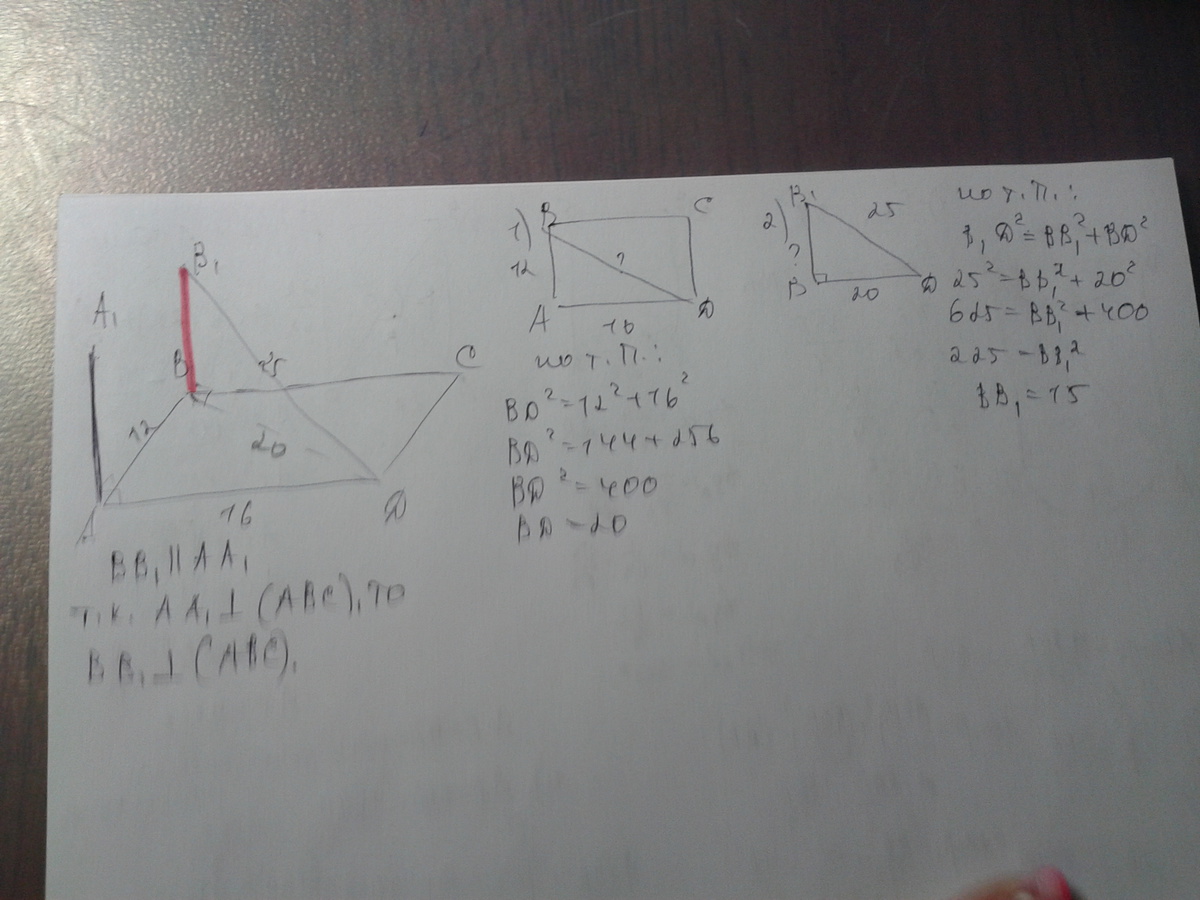 B₁
A₁
B
25
C
12
20
A
16
D
BB₁ || AA₁
т.к. AA₁ ⊥ (ABC), то
BB₁ ⊥ (ABC),
1)
B
C
12
?
A
16
D
по т.П.:
BD² = 12² + 16²
BD² = 144 + 256
BD² = 400
BD = 20
2)
B₁
25
?
B
20
D
по т.П.:
B₁D² = BB₁² + BD²
25² = BB₁² + 20²
625 = BB₁² + 400
225 = BB₁²
BB₁ = 15